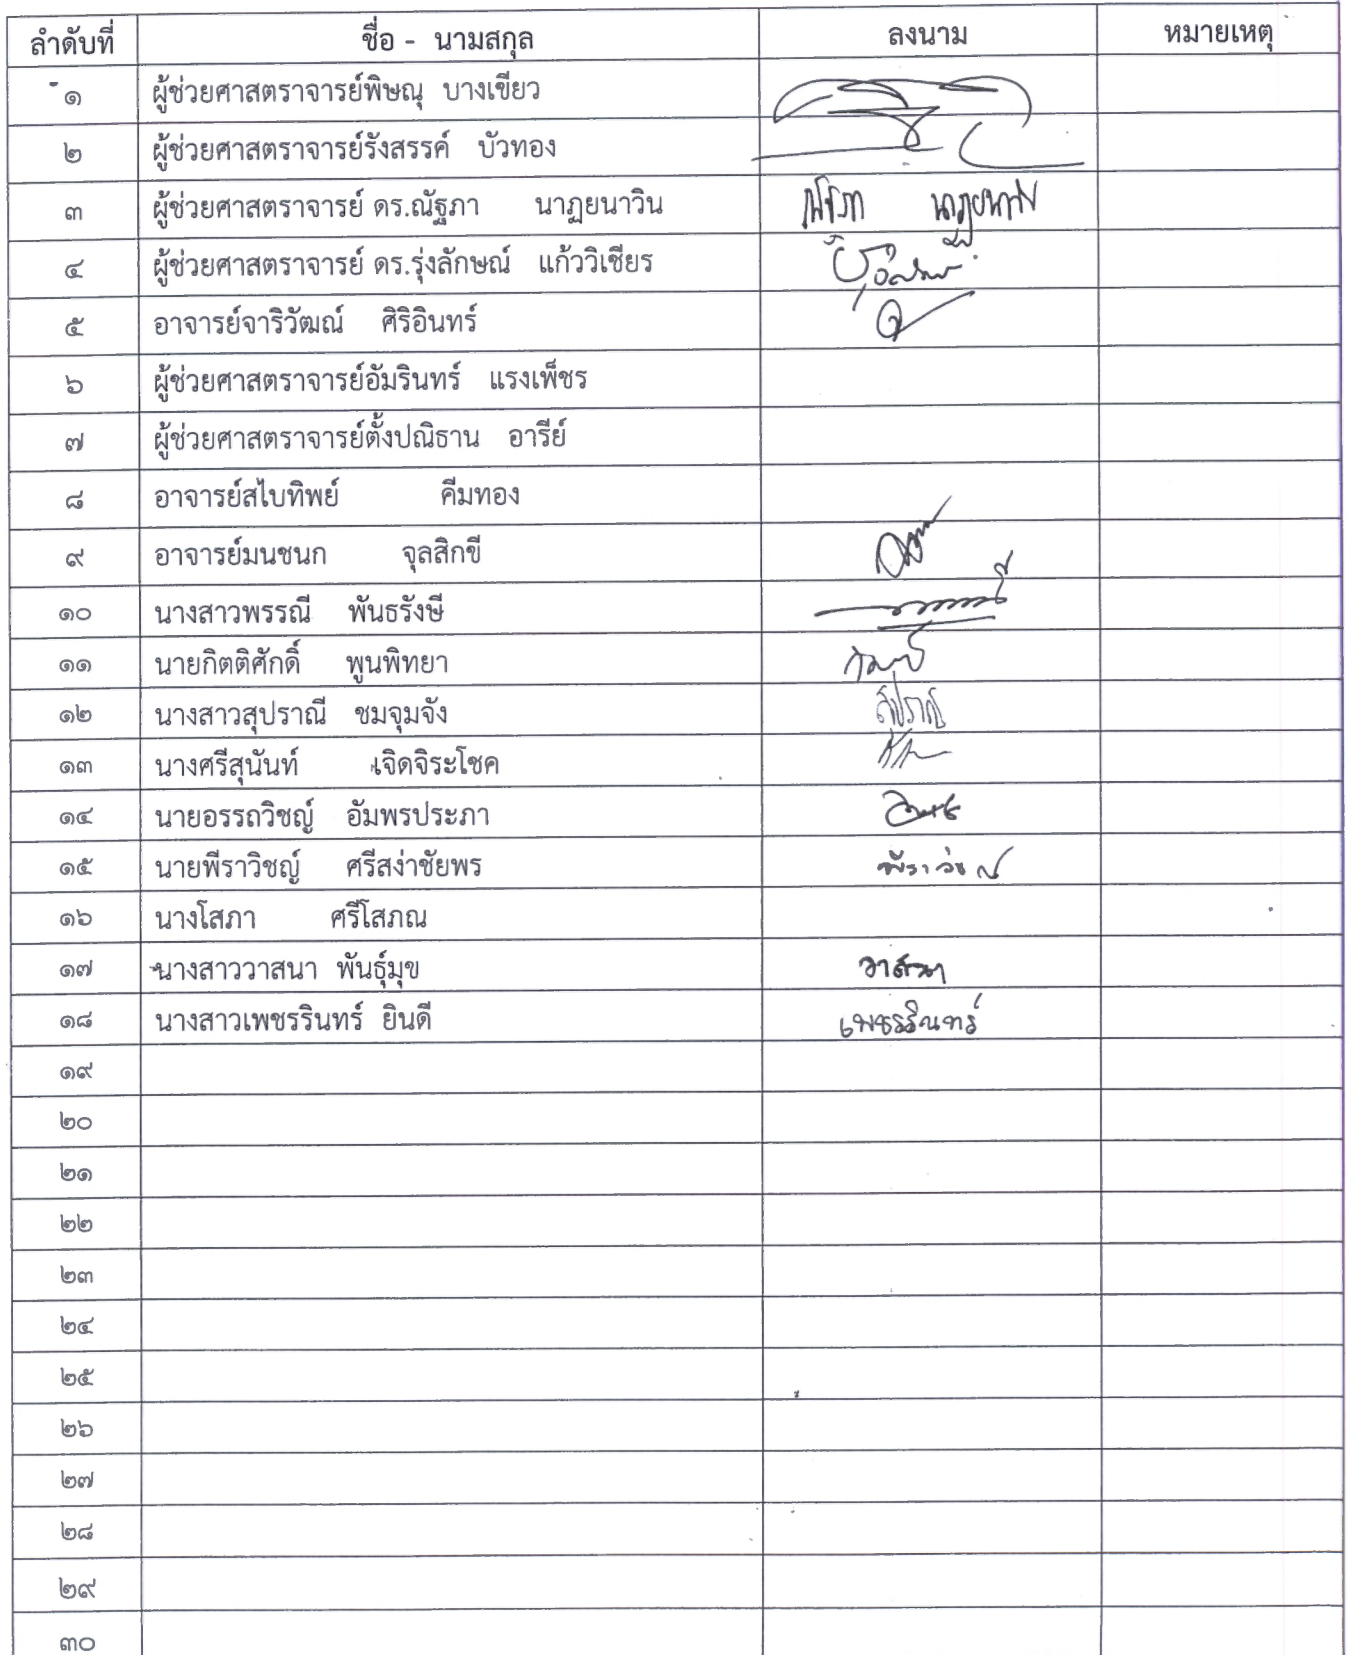 ลำดับที่ ชื่อ - นามสกุล ลงนาม หมายเหตุ
๑ ผู้ช่วยศาสตราจารย์พิษณุ บางเขียว
๒ ผู้ช่วยศาสตราจารย์รังสรรค์ บัวทอง
๓ ผู้ช่วยศาสตราจารย์ ดร.ณัฐภา นาฏยนาวิน ณัฐภา นาฏยนาวิน
๔ ผู้ช่วยศาสตราจารย์ ดร.รุ่งลักษณ์ แก้ววิเชียร
๕ อาจารย์จาริวัฒณ์ ศิริอินทร์
๖ ผู้ช่วยศาสตราจารย์อัมรินทร์ แรงเพ็ชร
๗ ผู้ช่วยศาสตราจารย์ตั้งปณิธาน อารีย์
๘ อาจารย์สไบทิพย์ คีมทอง
๙ อาจารย์มนชนก จุลสิกขี
๑๐ นางสาวพรรณี พันธรังษี
๑๑ นายกิตติศักดิ์ พูนพิทยา
๑๒ นางสาวสุปราณี ชมจุมจัง สุปราณี
๑๓ นางศรีสุนันท์ เจิดจิระโชค
๑๔ นายอรรถวิชญ์ อัมพรประภา
๑๕ นายพีราวิชญ์ ศรีสง่าชัยพร
๑๖ นางโสภา ศรีโสภณ
๑๗ นางสาววาสนา พันธุ์มุข วาสนา
๑๘ นางสาวเพชรรินทร์ ยินดี เพชรรินทร์
๑๙
๒๐
๒๑
๒๒
๒๓
๒๔
๒๕
๒๖
๒๗
๒๘
๒๙
๓๐